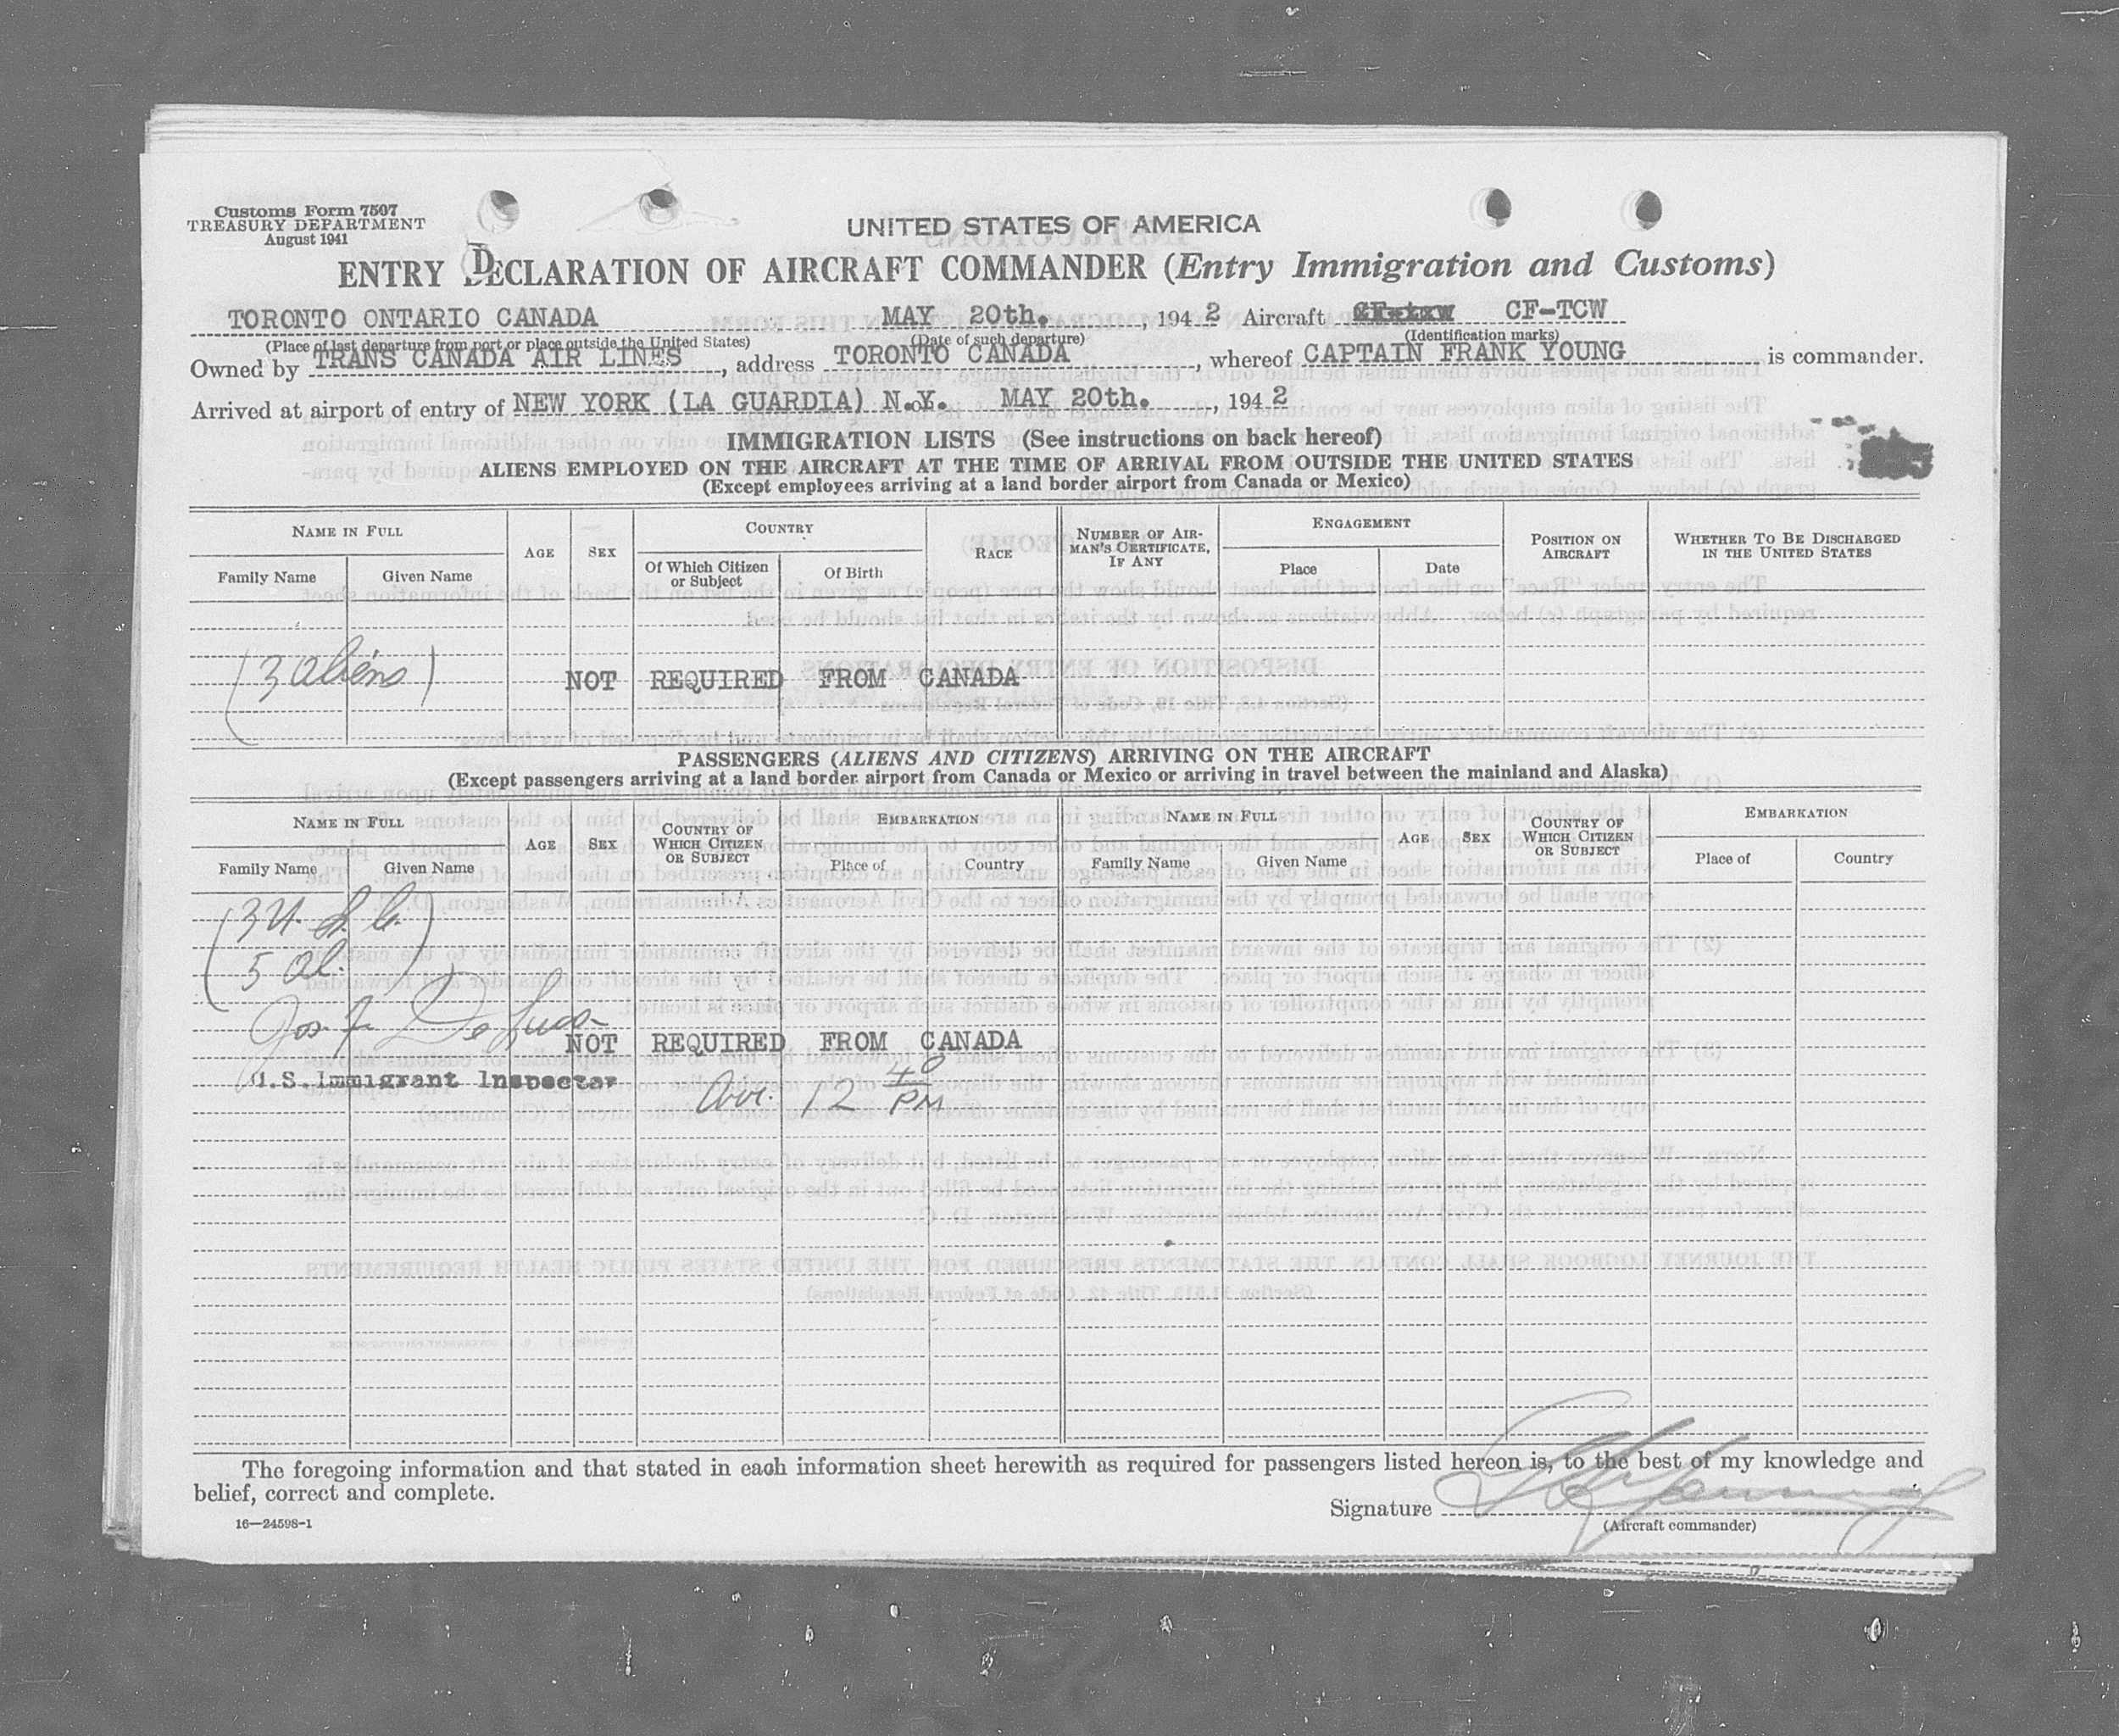 Customs Form 7507
TREASURY DEPARTMENT
August 1941
UNITED STATES OF AMERICA
ENTRY DECLARATION OF AIRCRAFT COMMANDER (Entry Immigration and Customs)
TORONTO ONTARIO CANADA MAY 20th. , 194 2 Aircraft CF-TCW
(Place of last departure from port or place outside the United States) (Date of such departure) (Identification marks)
Owned by TRANS CANADA AIR LINES , address TORONTO CANADA , whereof CAPTAIN FRANK YOUNG is commander.
Arrived at airport of entry of NEW YORK (LA GUARDIA) N.Y. on MAY 20th. , 194 2
IMMIGRATION LISTS (See instructions on back hereof)
ALIENS EMPLOYED ON THE AIRCRAFT AT THE TIME OF ARRIVAL FROM OUTSIDE THE UNITED STATES
(Except employees arriving at a land border airport from Canada or Mexico)
NAME IN FULL AGE SEX COUNTRY RACE NUMBER OF AIRMAN'S CERTIFICATE, IF ANY ENGAGEMENT POSITION ON AIRCRAFT WHETHER TO BE DISCHARGED IN THE UNITED STATES
Family Name Given Name Of Which Citizen or Subject Of Birth Place Date
(3 aliens)
NOT REQUIRED FROM CANADA
PASSENGERS (ALIENS AND CITIZENS) ARRIVING ON THE AIRCRAFT
(Except passengers arriving at a land border airport from Canada or Mexico or arriving in travel between the mainland and Alaska)
NAME IN FULL AGE SEX COUNTRY OF WHICH CITIZEN OR SUBJECT EMBARKATION NAME IN FULL AGE SEX COUNTRY OF WHICH CITIZEN OR SUBJECT EMBARKATION
Family Name Given Name Place of Country Family Name Given Name Place of Country
(3 U.S.C.
5 al.)
Jos. F. De Luca
NOT REQUIRED FROM CANADA
U.S. Immigrant Inspector
Arr. 12 40 PM
The foregoing information and that stated in each information sheet herewith as required for passengers listed hereon is, to the best of my knowledge and
belief, correct and complete.
Signature
(Aircraft commander)
16—24598-1